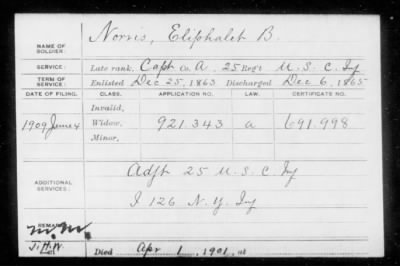 NAME OF SOLDIER: Norris, Eliphalet B.
SERVICE: Late rank, Capt Co. A, 25 Reg't U. S. C. Inf
TERM OF SERVICE: Enlisted Dec 25, 1863 Discharged Dec 6, 1865
DATE OF FILING. CLASS. APPLICATION NO. LAW. CERTIFICATE NO.
Invalid,
1909 June 4 Widow, 921.343 a 691.998
Minor,
ADDITIONAL SERVICES: Adjt 25 U. S. C. Inf
I 126 N. Y. Inf
REMARKS:
M.M.
J.H.W.
Died Apr 1, 1901, at